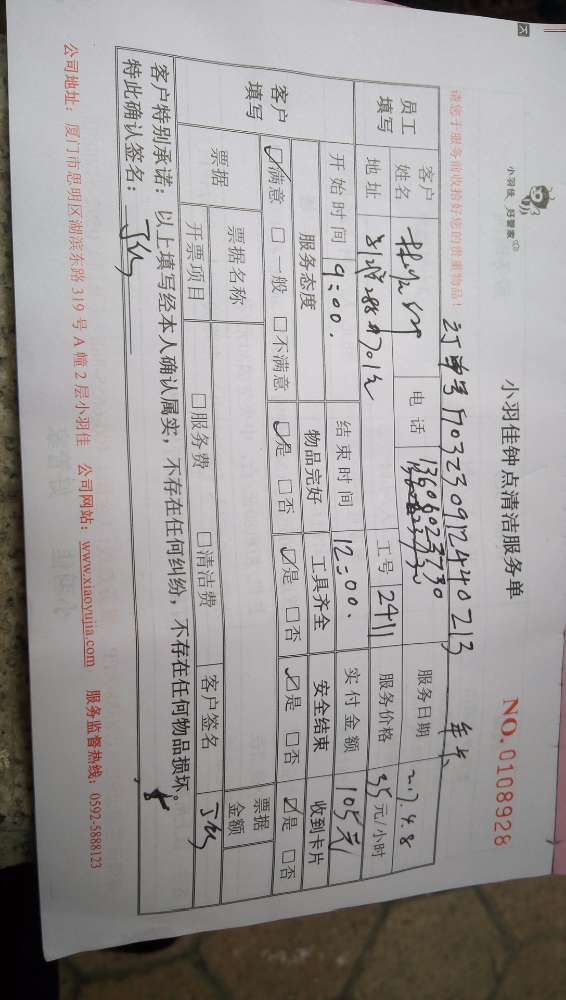 小羽佳 好管家
小羽佳钟点清洁服务单
NO. 0108928
请您于服务前收拾好您的贵重物品!
订单号 170323091244 0213 年卡
员工填写
客户姓名
电话 13606023730
服务日期 2017.4.8
地址 288 701
工号 2411
服务价格 35 元/小时
开始时间 9:00.
结束时间 12:00.
实付金额 105元
客户填写
服务态度 物品完好 工具齐全 安全结束 收到卡片
☑满意 □一般 □不满意 ☑是 □否 ☑是 □否 ☑是 □否 ☑是 □否
票据
票据名称
票据金额
开票项目 □服务费 □清洁费
客户签名
客户特别承诺:以上填写经本人确认属实,不存在任何纠纷,不存在任何物品损坏。
特此确认签名:
公司地址:厦门市思明区湖滨东路319号A幢2层小羽佳 公司网站:www.xiaoyujia.com 服务监督热线:0592-5888123